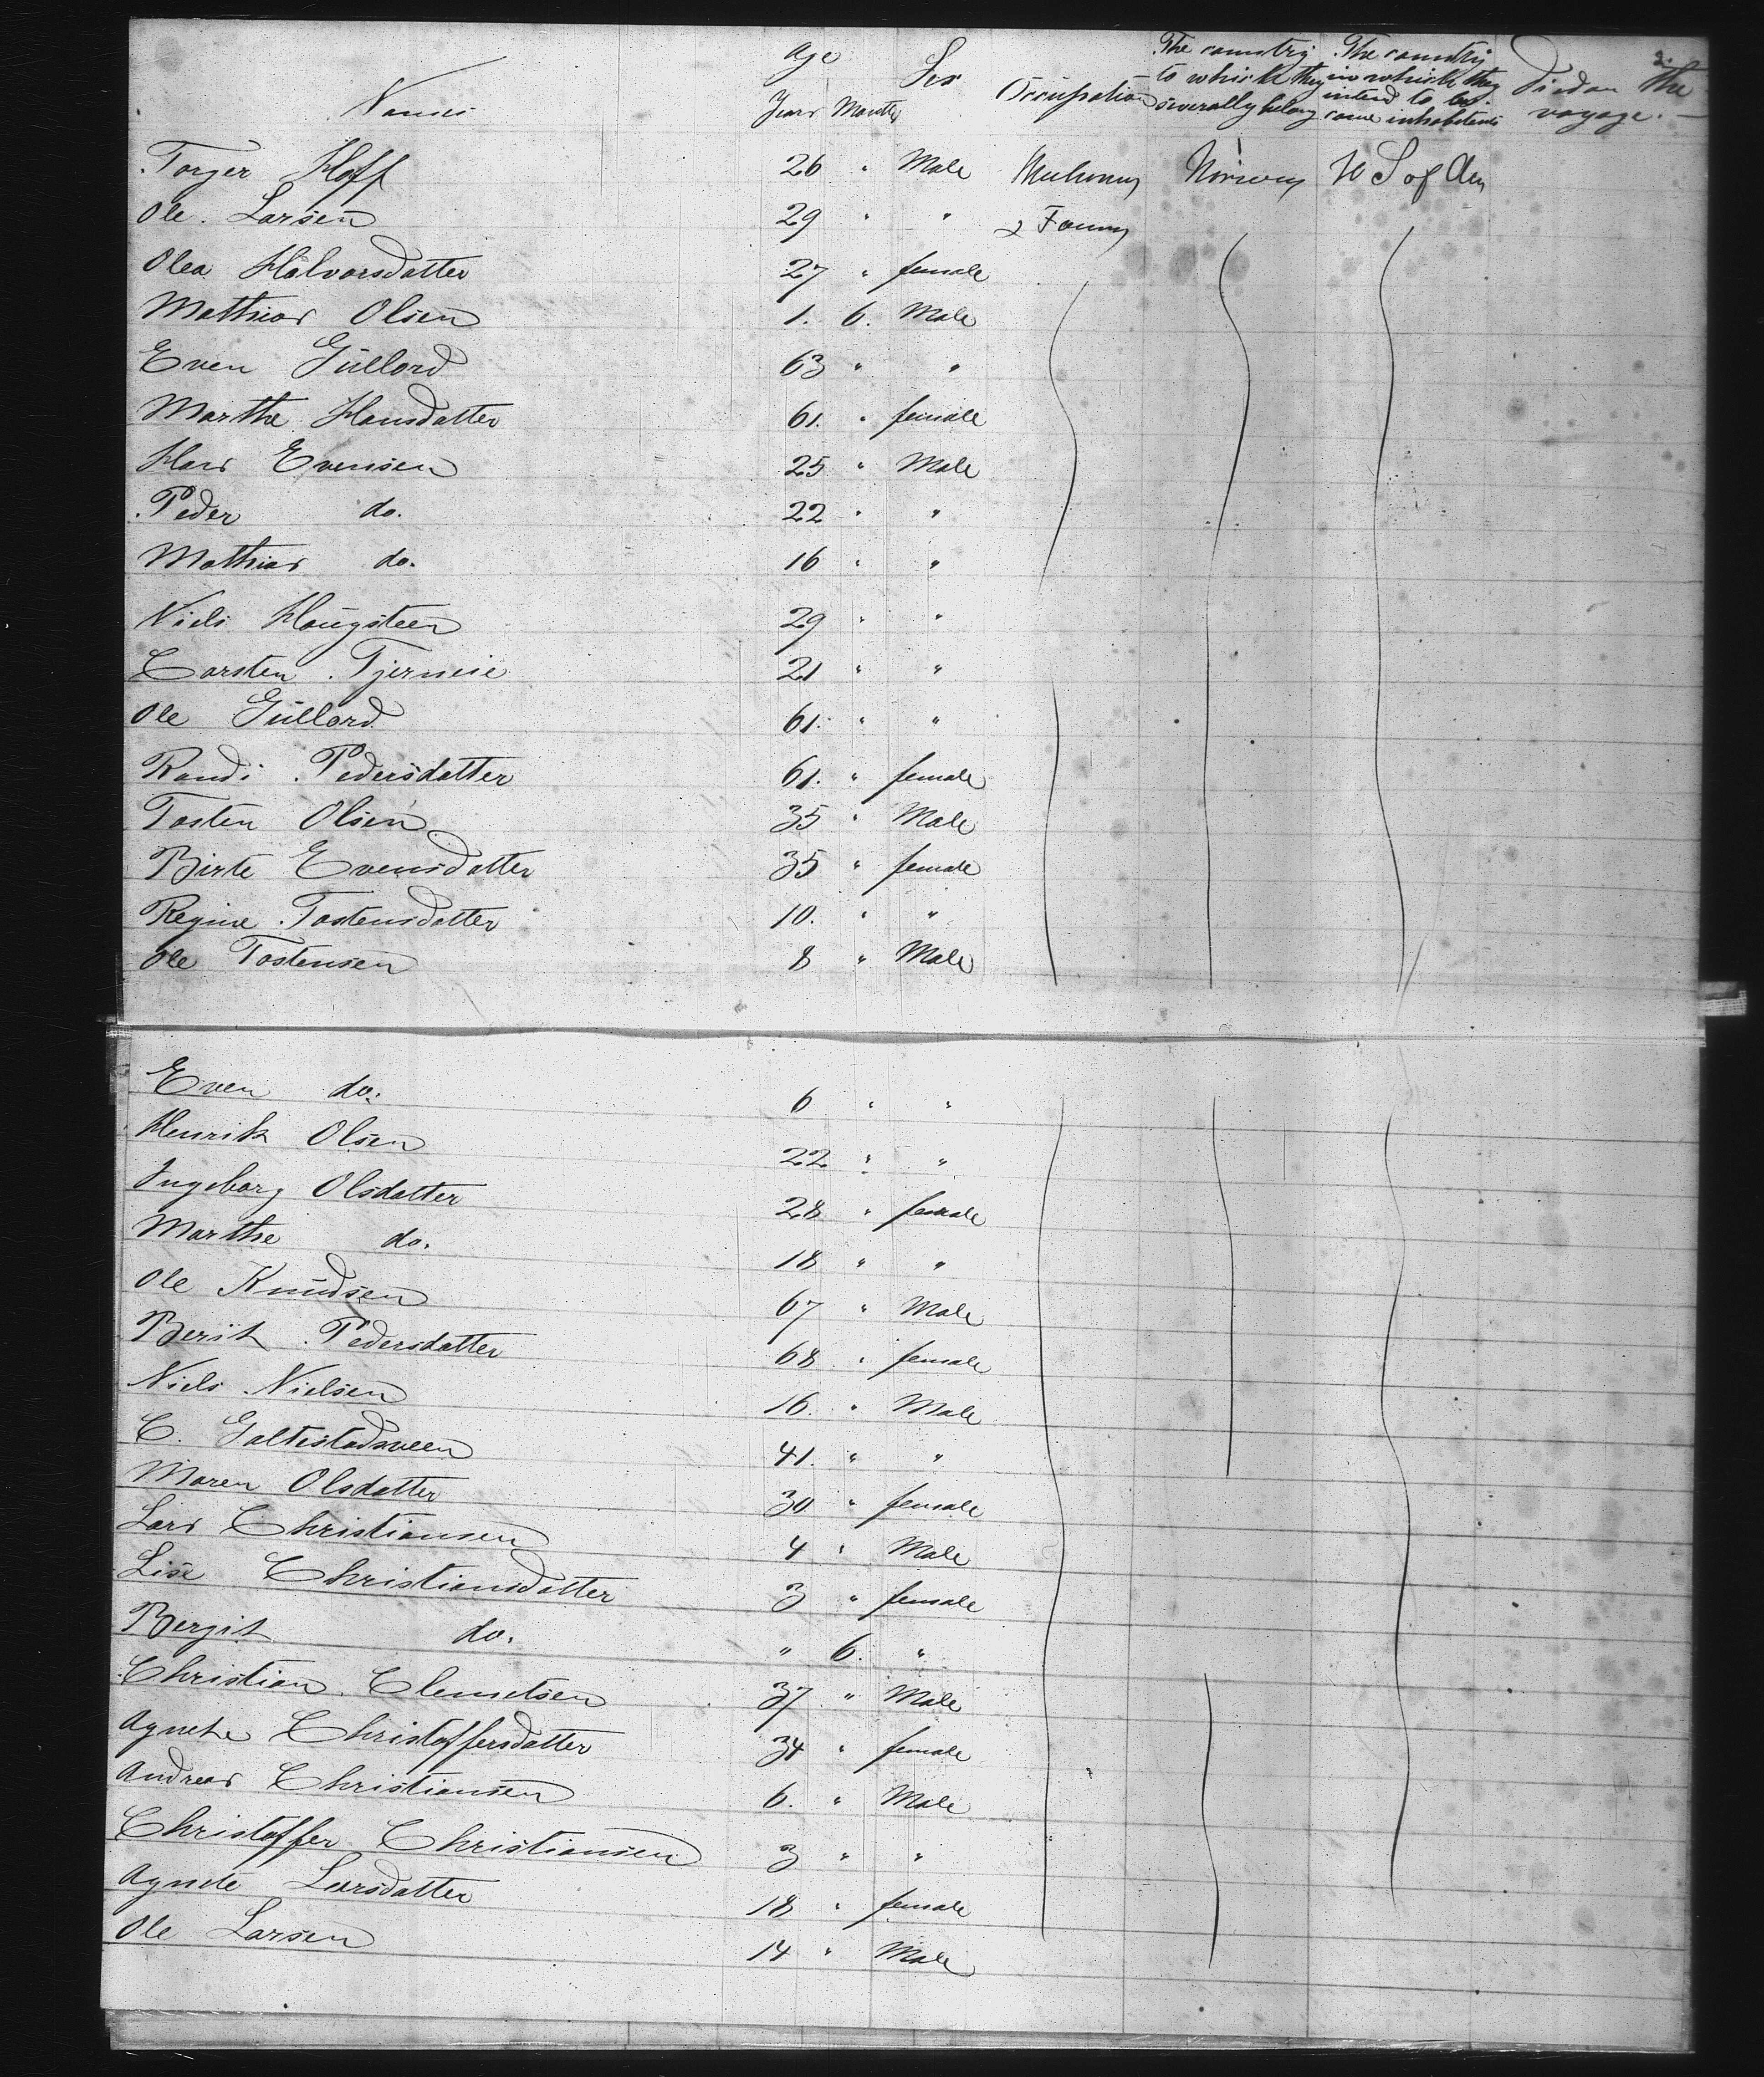 2.
Names Age Years Months Sex Occupation The country to which they severally belong The country in which they intend to become inhabitants Died on the voyage.
Torger Hoff 26 " Male Norway U S of Am
Ole Larsen 29 " "
Olea Halvorsdatter 27 " female
Mathias Olsen 1. 6. Male
Even Gullord 63 " "
Marthe Hansdatter 61. " female
Hans Evensen 25 " Male
Peder do. 22 " "
Mathias do. 16 " "
Niels Haugsteen 29 " "
Carsten Tjerneie 21 " "
Ole Gullord 61. " "
Randi Pedersdatter 61. " female
Tosten Olsen 35 " Male
Birte Evensdatter 35 " female
Regine Tostensdatter 10. " "
Ole Tostensen 8 " Male
Even do. 6 " "
Henrik Olsen 22 " "
Ingeborg Olsdatter 28 " female
Marthe do. 18 " "
Ole Knudsen 67 " Male
Berit Pedersdatter 68 " female
Niels Nielsen 16. " Male
C. Galtestadsveen 41. " "
Maren Olsdatter 30 " female
Lars Christiansen 4 " Male
Lise Christiansdatter 3 " female
Bergit do. " 6. "
Christian Clemetsen 37 " Male
Agnethe Christoffersdatter 34 " female
Andreas Christiansen 6. " Male
Christoffer Christiansen 3 " "
Agnete Larsdatter 18 " female
Ole Larsen 14 " Male